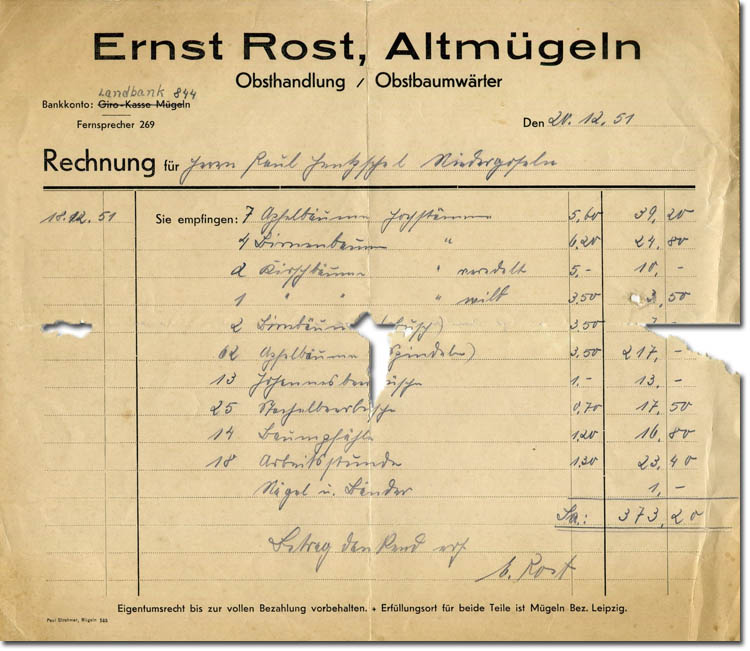 Ernst Rost, Altmügeln
Obsthandlung / Obstbaumwärter
Landbank 844
Bankkonto: Giro-Kasse Mügeln
Fernsprecher 269
Den 20.12.51
Rechnung für Herrn Paul Hentzschel Niedergoseln
18.12.51 Sie empfingen: 7 Apfelbäume Hochstämme 5,60 39,20
4 Birnenbäume " 6,20 24,80
2 Kirschbäume " veredelt 5,- 10,-
1 " " " wild 3,50 3,50
2 Birnbäume (Busch) 3,50 7,-
62 Apfelbäume (Spindeln) 3,50 217,-
13 Johannesbeerbüsche 1,- 13,-
25 Stachelbeerbüsche 0,70 17,50
14 Baumpfähle 1,20 16,80
18 Arbeitsstunde 1,30 23,40
Nägel u. Bänder 1,-
Sa.: 373,20
Betrag dankend erh.
E. Rost
Eigentumsrecht bis zur vollen Bezahlung vorbehalten. + Erfüllungsort für beide Teile ist Mügeln Bez. Leipzig.
Mügeln